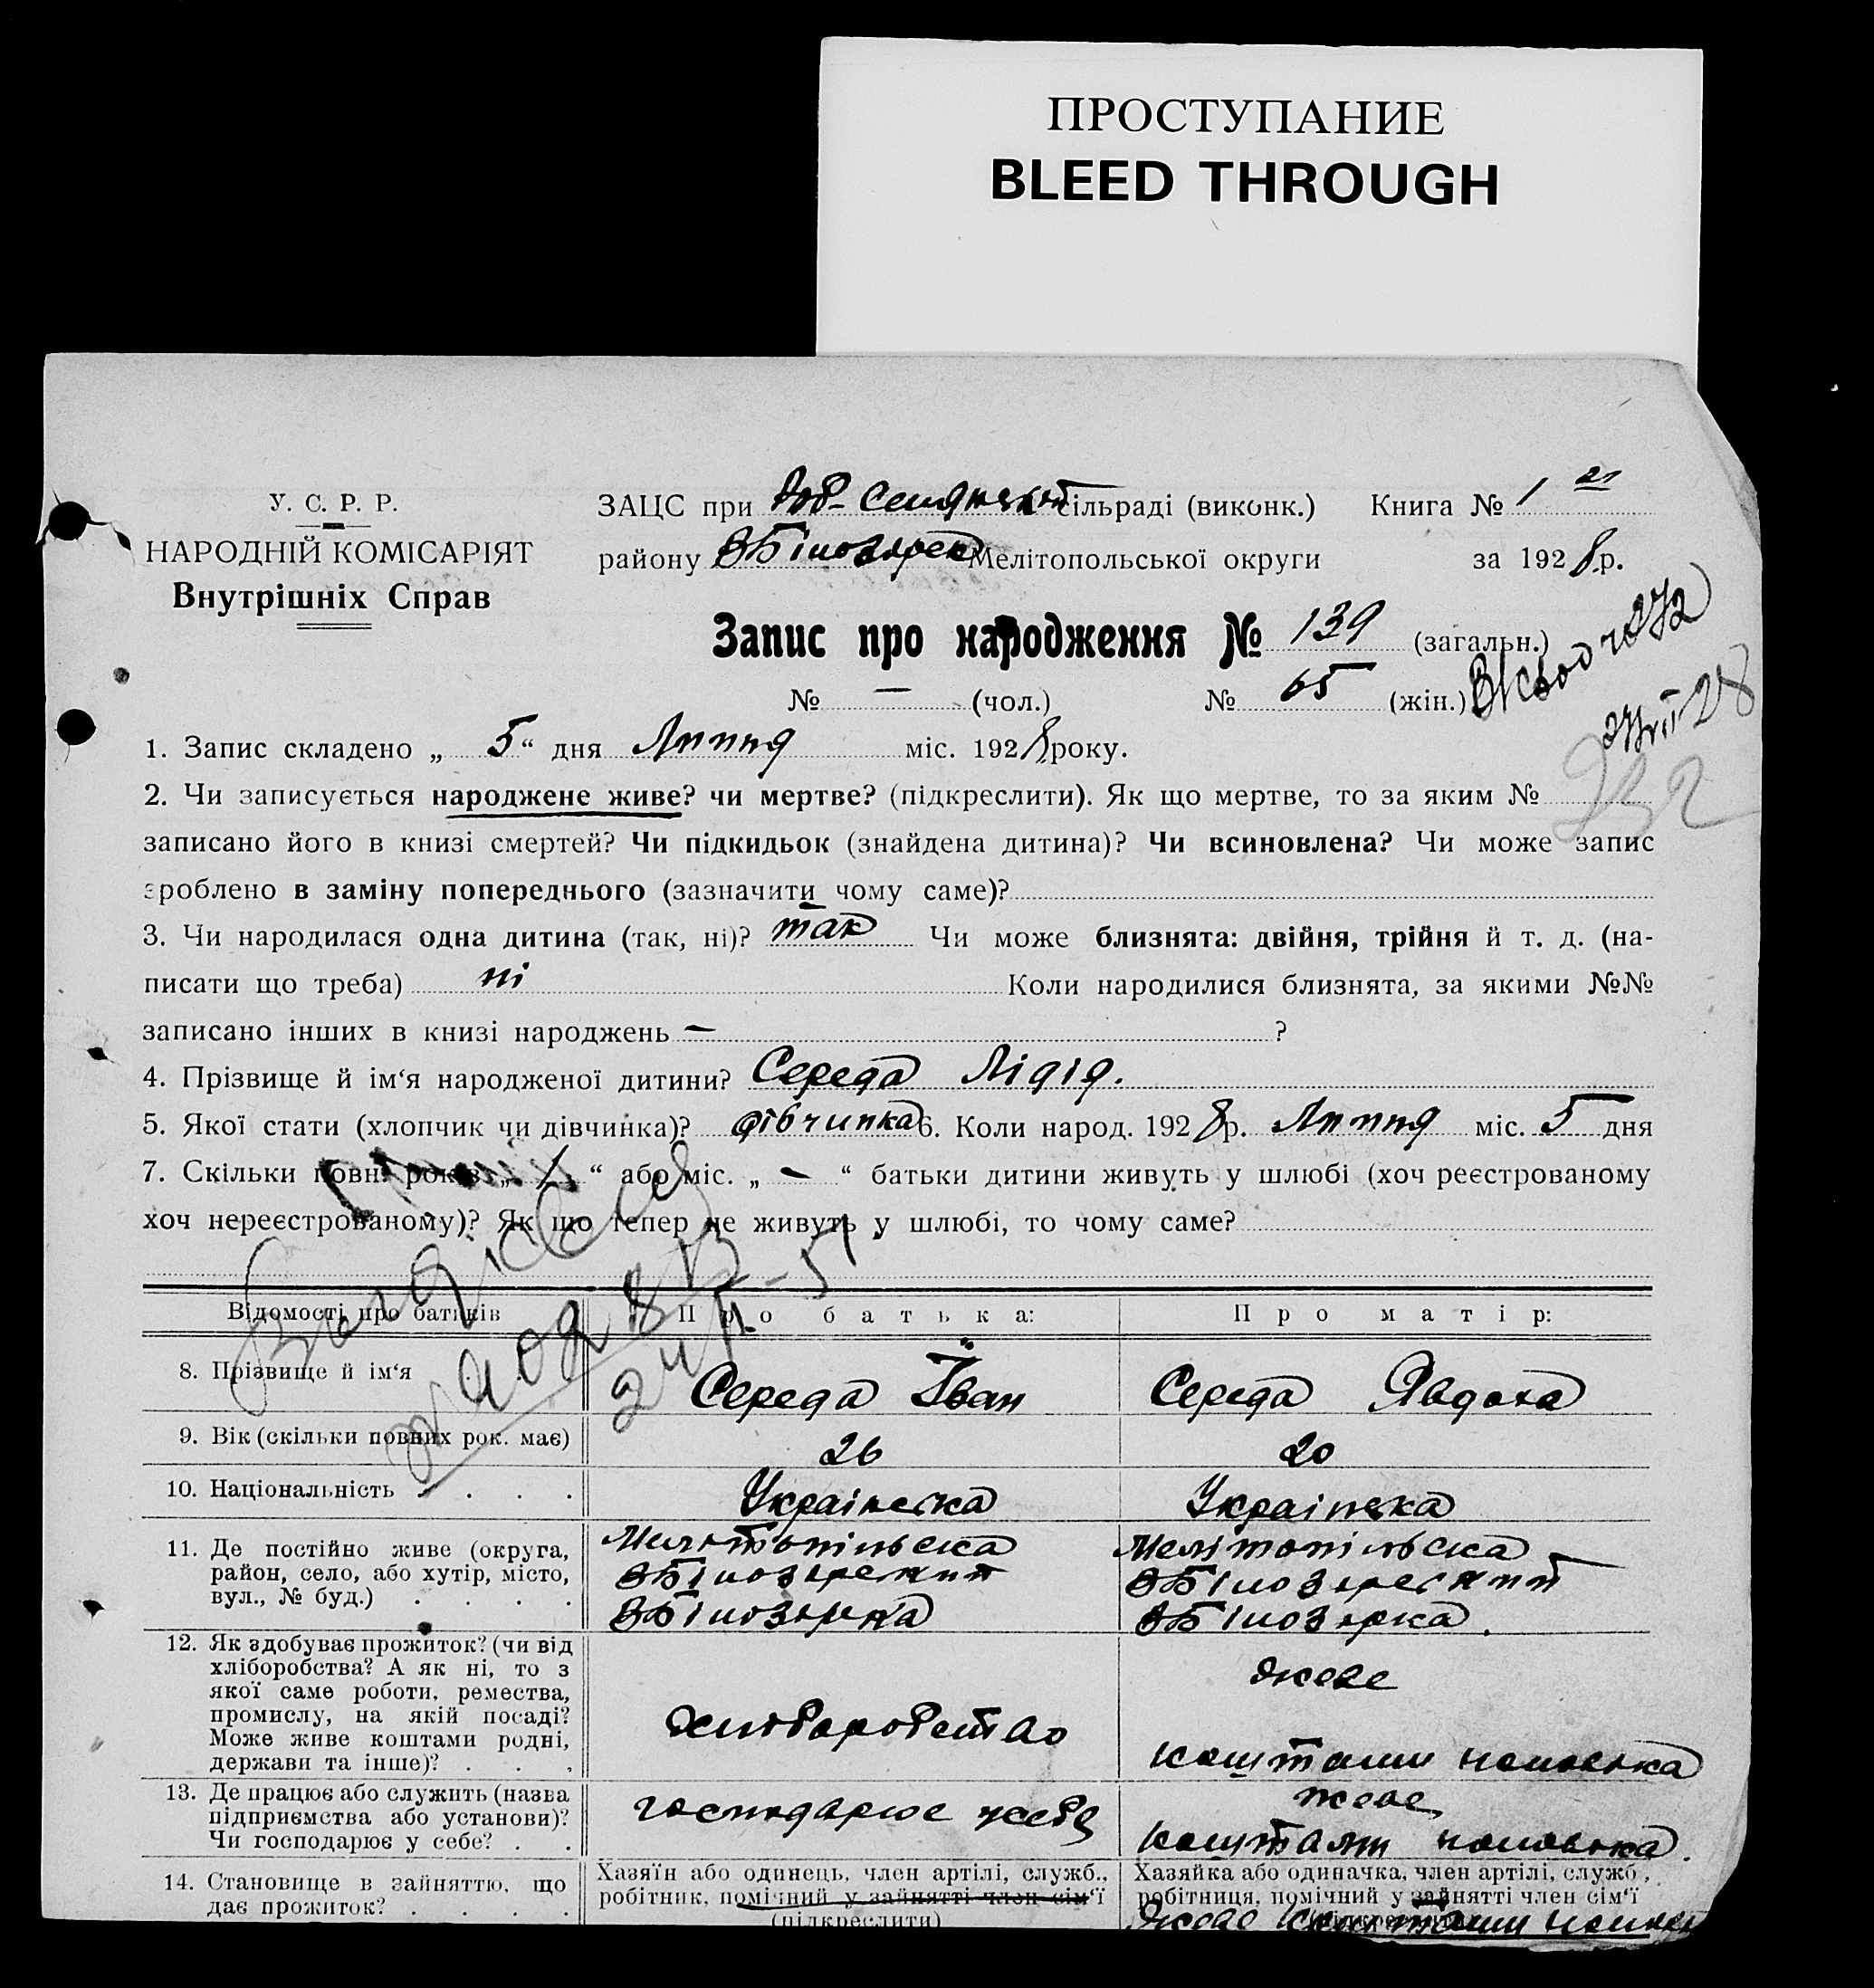 ПРОСТУПАНИЕ
BLEED THROUGH
У. С. Р. Р.
НАРОДНІЙ КОМІСАРІЯТ
Внутрішніх Справ
ЗАЦС при сільраді (виконк.) Книга № 1
району Мелітопольської округи за 1928 р.
Запис про народження № 139 (загальн.)
№ — (чол.) № 65 (жін.)
1. Запис складено „ 5 “ дня Липня міс. 1928 року.
2. Чи записується народжене живе? чи мертве? (підкреслити). Як що мертве, то за яким №
записано його в книзі смертей? Чи підкидьок (знайдена дитина)? Чи всиновлена? Чи може запис
зроблено в заміну попереднього (зазначити чому саме)?
3. Чи народилася одна дитина (так, ні)? так Чи може близнята: двійня, трійня й т. д. (на-
писати що треба) ні Коли народилися близнята, за якими №№
записано інших в книзі народжень — ?
4. Прізвище й ім‘я народженої дитини? Середа Лідія.
5. Якої стати (хлопчик чи дівчинка)? дівчинка 6. Коли народ. 1928 р. Липня міс. 5 дня
7. Скільки повн. років „ 1 “ або міс. „ — “ батьки дитини живуть у шлюбі (хоч реєстрованому
хоч нереєстрованому)? Як що тепер не живуть у шлюбі, то чому саме?
Відомості про батьків Про батька: Про матір:
8. Прізвище й ім‘я Середа Їван Середа Явдоха
9. Вік (скільки повних рок. має) 26 20
10. Національність . . . . Українська Українська
11. Де постійно живе (округа, район, село, або хутір, місто, вул., № буд.) . . . .
Мелітопільська Мелітопільська
ВБілозерский ВБілозерский
ВБілозерка ВБілозерка.
12. Як здобуває прожиток? (чи від
хліборобства? А як ні, то з
якої саме роботи, ремества,
промислу, на якій посаді?
Може живе коштами родні,
держави та інше)? . . .
хліборобство
живе
коштами чоловіка
13. Де працює або служить (назва
підприємства або установи)?
Чи господарює у себе? . .
господарює у себе
живе
коштами чоловіка.
14. Становище в зайняттю, що
дає прожиток? . . . .
Хазяїн або одинець, член артілі, служб.,
робітник, помічний у зайнятті член сім‘ї
(підкреслити)
Хазяйка або одиначка, член артілі, служб.,
робітниця, помічний у зайнятті член сім‘ї
живе коштами